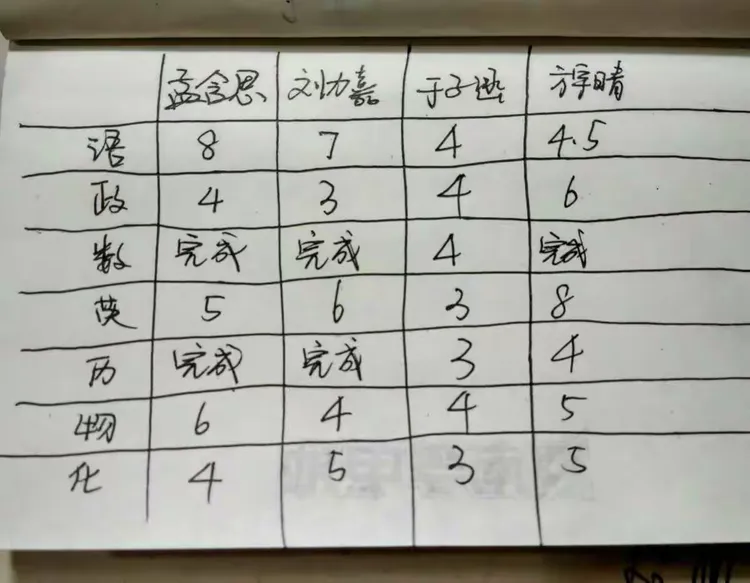 孟含思 刘力嘉 于子涵 方宇晴
语 8 7 4 4.5
政 4 3 4 6
数 完成 完成 4 完成
英 5 6 3 8
历 完成 完成 3 4
物 6 4 4 5
化 4 5 3 5